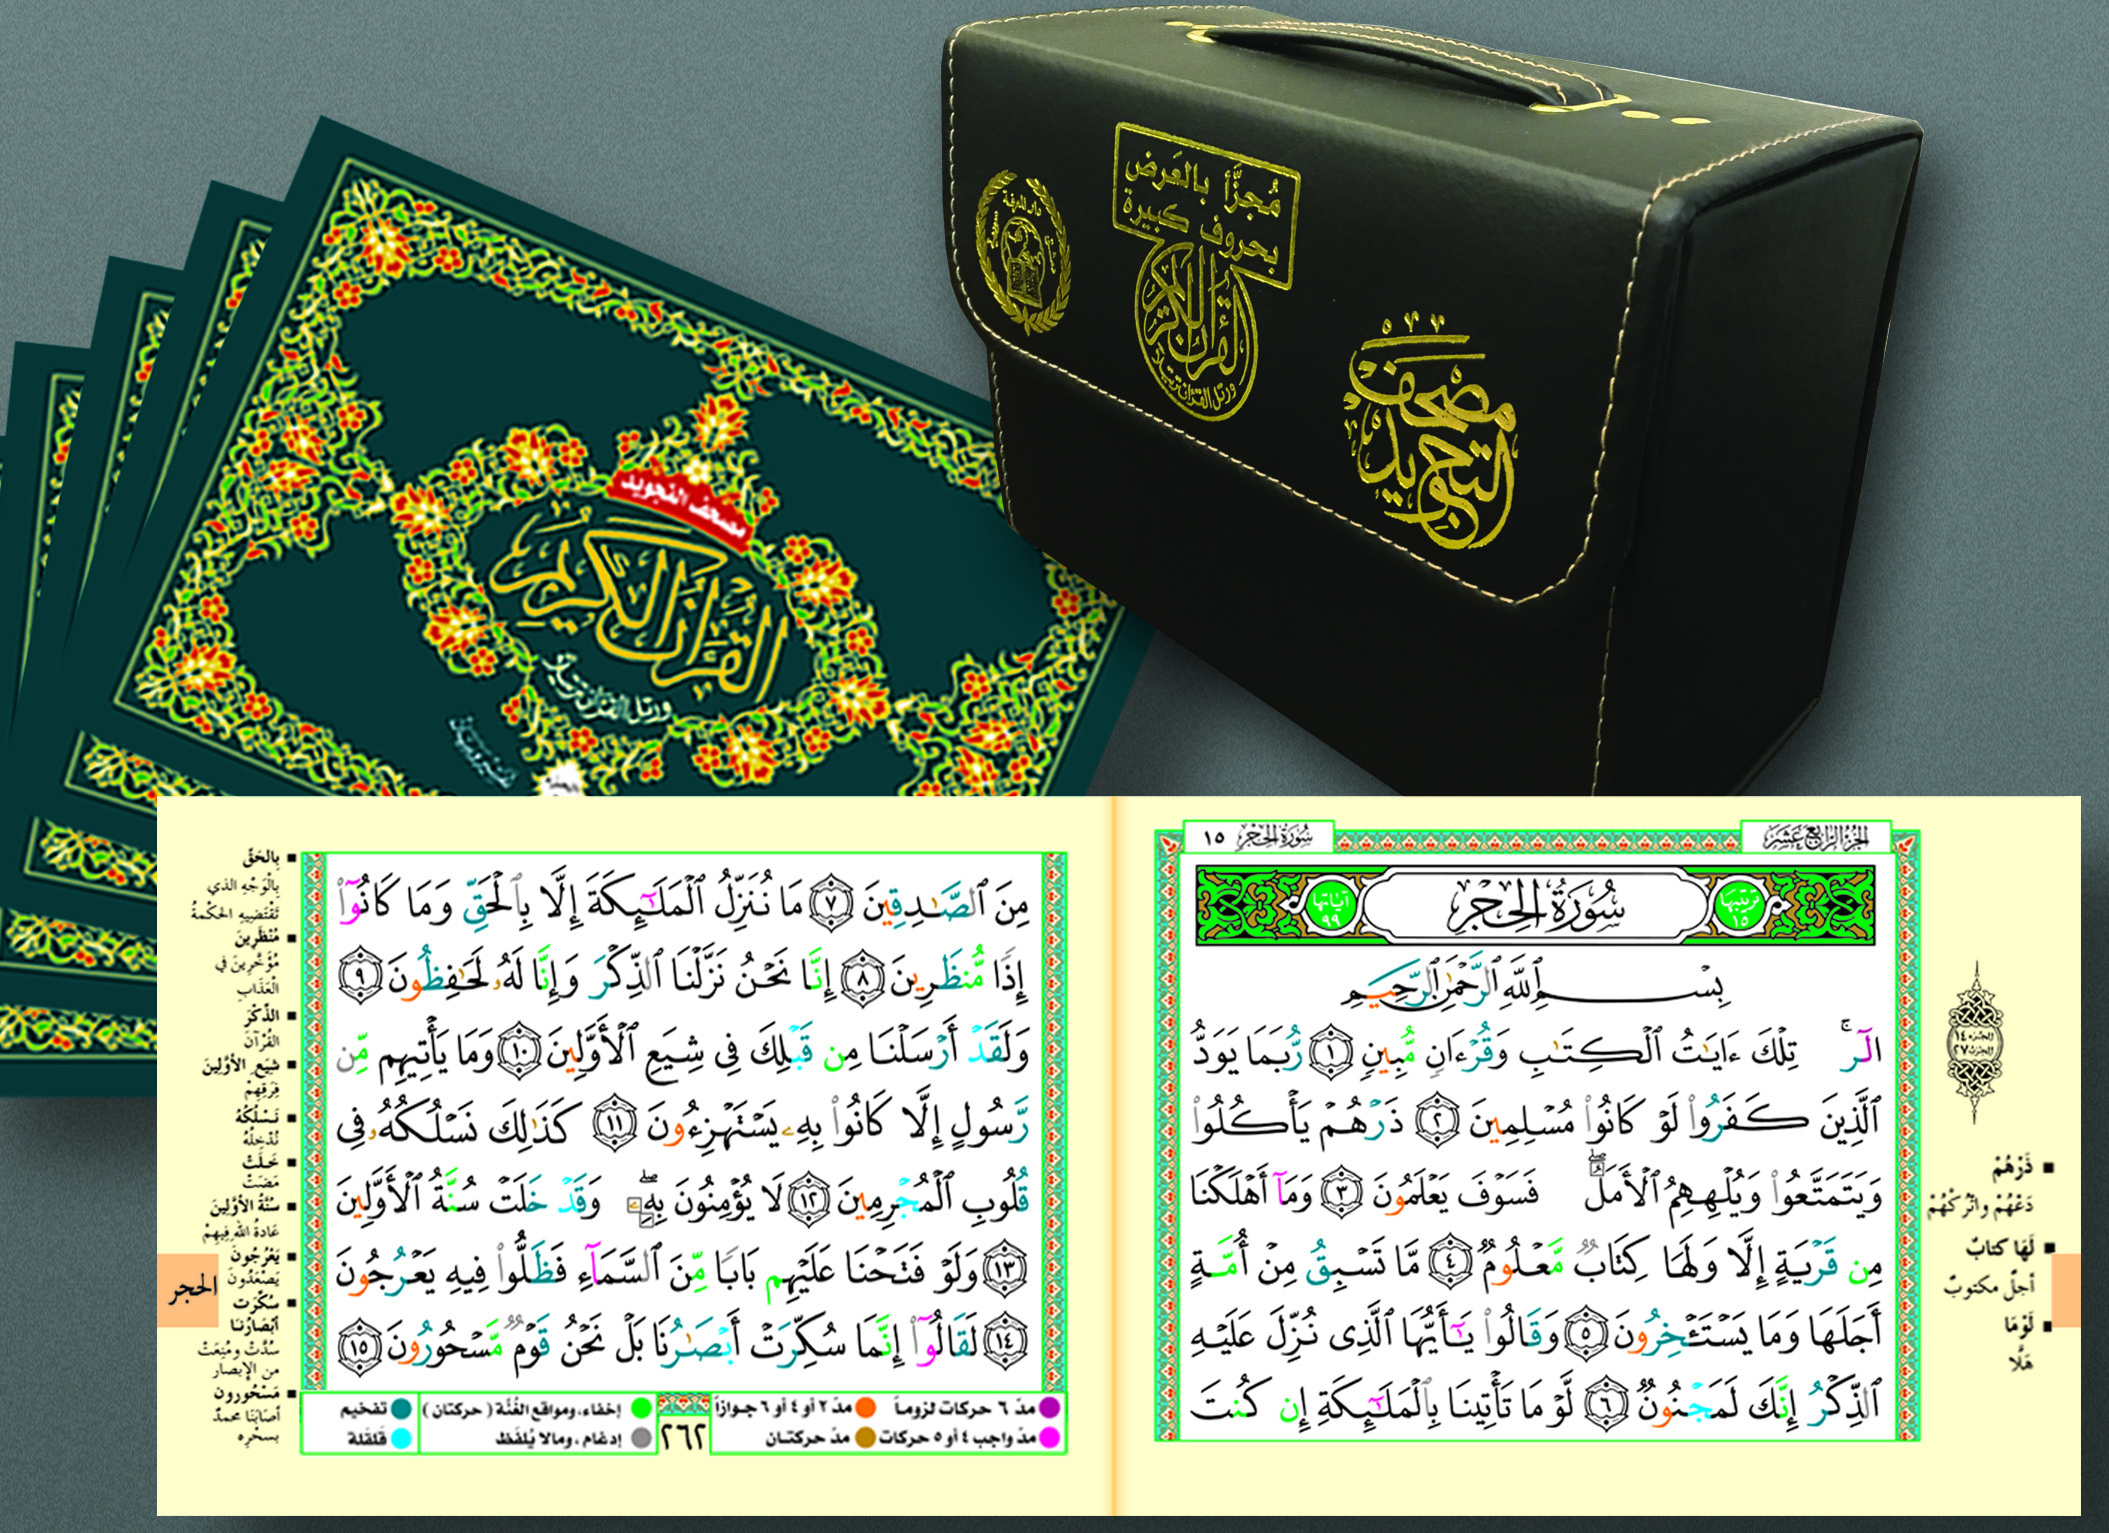 مُجزَّأ بالعَرض
بحروف كبيرة
القرآن الكريم
ورتل القرآن ترتيلا
دار المعرفة
مصحف
التجويد
مصحف التجويد
القرآن الكريم
ورتل القرآن ترتيلا
الجزء الرابع عشر
سورة الحجر ١٥
ترتيبها ١٥
سُورَةُ الحِجْرِ
آياتها ٩٩
بِسْمِ ٱللَّهِ ٱلرَّحْمَٰنِ ٱلرَّحِيمِ
الٓر ۚ تِلْكَ ءَايَٰتُ ٱلْكِتَٰبِ وَقُرْءَانٍ مُّبِينٍ ١ رُّبَمَا يَوَدُّ
ٱلَّذِينَ كَفَرُوا۟ لَوْ كَانُوا۟ مُسْلِمِينَ ٢ ذَرْهُمْ يَأْكُلُوا۟
وَيَتَمَتَّعُوا۟ وَيُلْهِهِمُ ٱلْأَمَلُ ۖ فَسَوْفَ يَعْلَمُونَ ٣ وَمَآ أَهْلَكْنَا
مِن قَرْيَةٍ إِلَّا وَلَهَا كِتَابٌ مَّعْلُومٌ ٤ مَّا تَسْبِقُ مِنْ أُمَّةٍ
أَجَلَهَا وَمَا يَسْتَـْٔخِرُونَ ٥ وَقَالُوا۟ يَٰٓأَيُّهَا ٱلَّذِى نُزِّلَ عَلَيْهِ
ٱلذِّكْرُ إِنَّكَ لَمَجْنُونٌ ٦ لَّوْ مَا تَأْتِينَا بِٱلْمَلَٰٓئِكَةِ إِن كُنتَ
الجزء ١٤
الحزب ٢٧
ذَرْهُمْ
دَعْهُمْ واتْرُكْهُمْ
لَهَا كتابٌ
أجلٌ مكتوبٌ
لَوْمَا
هَلَّا
مِنَ ٱلصَّٰدِقِينَ ٧ مَا نُنَزِّلُ ٱلْمَلَٰٓئِكَةَ إِلَّا بِٱلْحَقِّ وَمَا كَانُوٓا۟
إِذًا مُّنظَرِينَ ٨ إِنَّا نَحْنُ نَزَّلْنَا ٱلذِّكْرَ وَإِنَّا لَهُۥ لَحَٰفِظُونَ ٩
وَلَقَدْ أَرْسَلْنَا مِن قَبْلِكَ فِى شِيَعِ ٱلْأَوَّلِينَ ١٠ وَمَا يَأْتِيهِم مِّن
رَّسُولٍ إِلَّا كَانُوا۟ بِهِۦ يَسْتَهْزِءُونَ ١١ كَذَٰلِكَ نَسْلُكُهُۥ فِى
قُلُوبِ ٱلْمُجْرِمِينَ ١٢ لَا يُؤْمِنُونَ بِهِۦ ۖ وَقَدْ خَلَتْ سُنَّةُ ٱلْأَوَّلِينَ
١٣ وَلَوْ فَتَحْنَا عَلَيْهِم بَابًا مِّنَ ٱلسَّمَآءِ فَظَلُّوا۟ فِيهِ يَعْرُجُونَ
١٤ لَقَالُوٓا۟ إِنَّمَا سُكِّرَتْ أَبْصَٰرُنَا بَلْ نَحْنُ قَوْمٌ مَّسْحُورُونَ ١٥
بِالحَقِّ
بالْوَجْهِ الذي
تَقْتَضِيهِ الحكْمةُ
مُنْظَرِينَ
مُؤَخَّرِينَ في
العَذَابِ
الذِّكْرَ
القُرْآنَ
شِيَعِ الأوَّلِينَ
فِرَقِهِمْ
نَسْلُكُهُ
نُدْخِلُهُ
خَلَتْ
مَضَتْ
سُنَّةُ الأوَّلِينَ
عَادةُ الله فِيهِمْ
يَعْرُجُونَ
يَصْعَدُونَ
سُكِّرَت أبْصَارُنَا
سُدَّتْ ومُنِعَتْ
من الإبصار
مَسْحُورون
أصابَنَا محمدٌ
بسحْرِه
الحجر
مدّ ٦ حركات لزوماً مدّ ٢ أو ٤ أو ٦ جوازاً
مدّ واجب ٤ أو ٥ حركات مدّ حركتان
٢٦٢
إخفاء، ومواقع الغُنَّة (حركتان) تفخيم
إدغام، ومالا يُلفَظ قلقلة